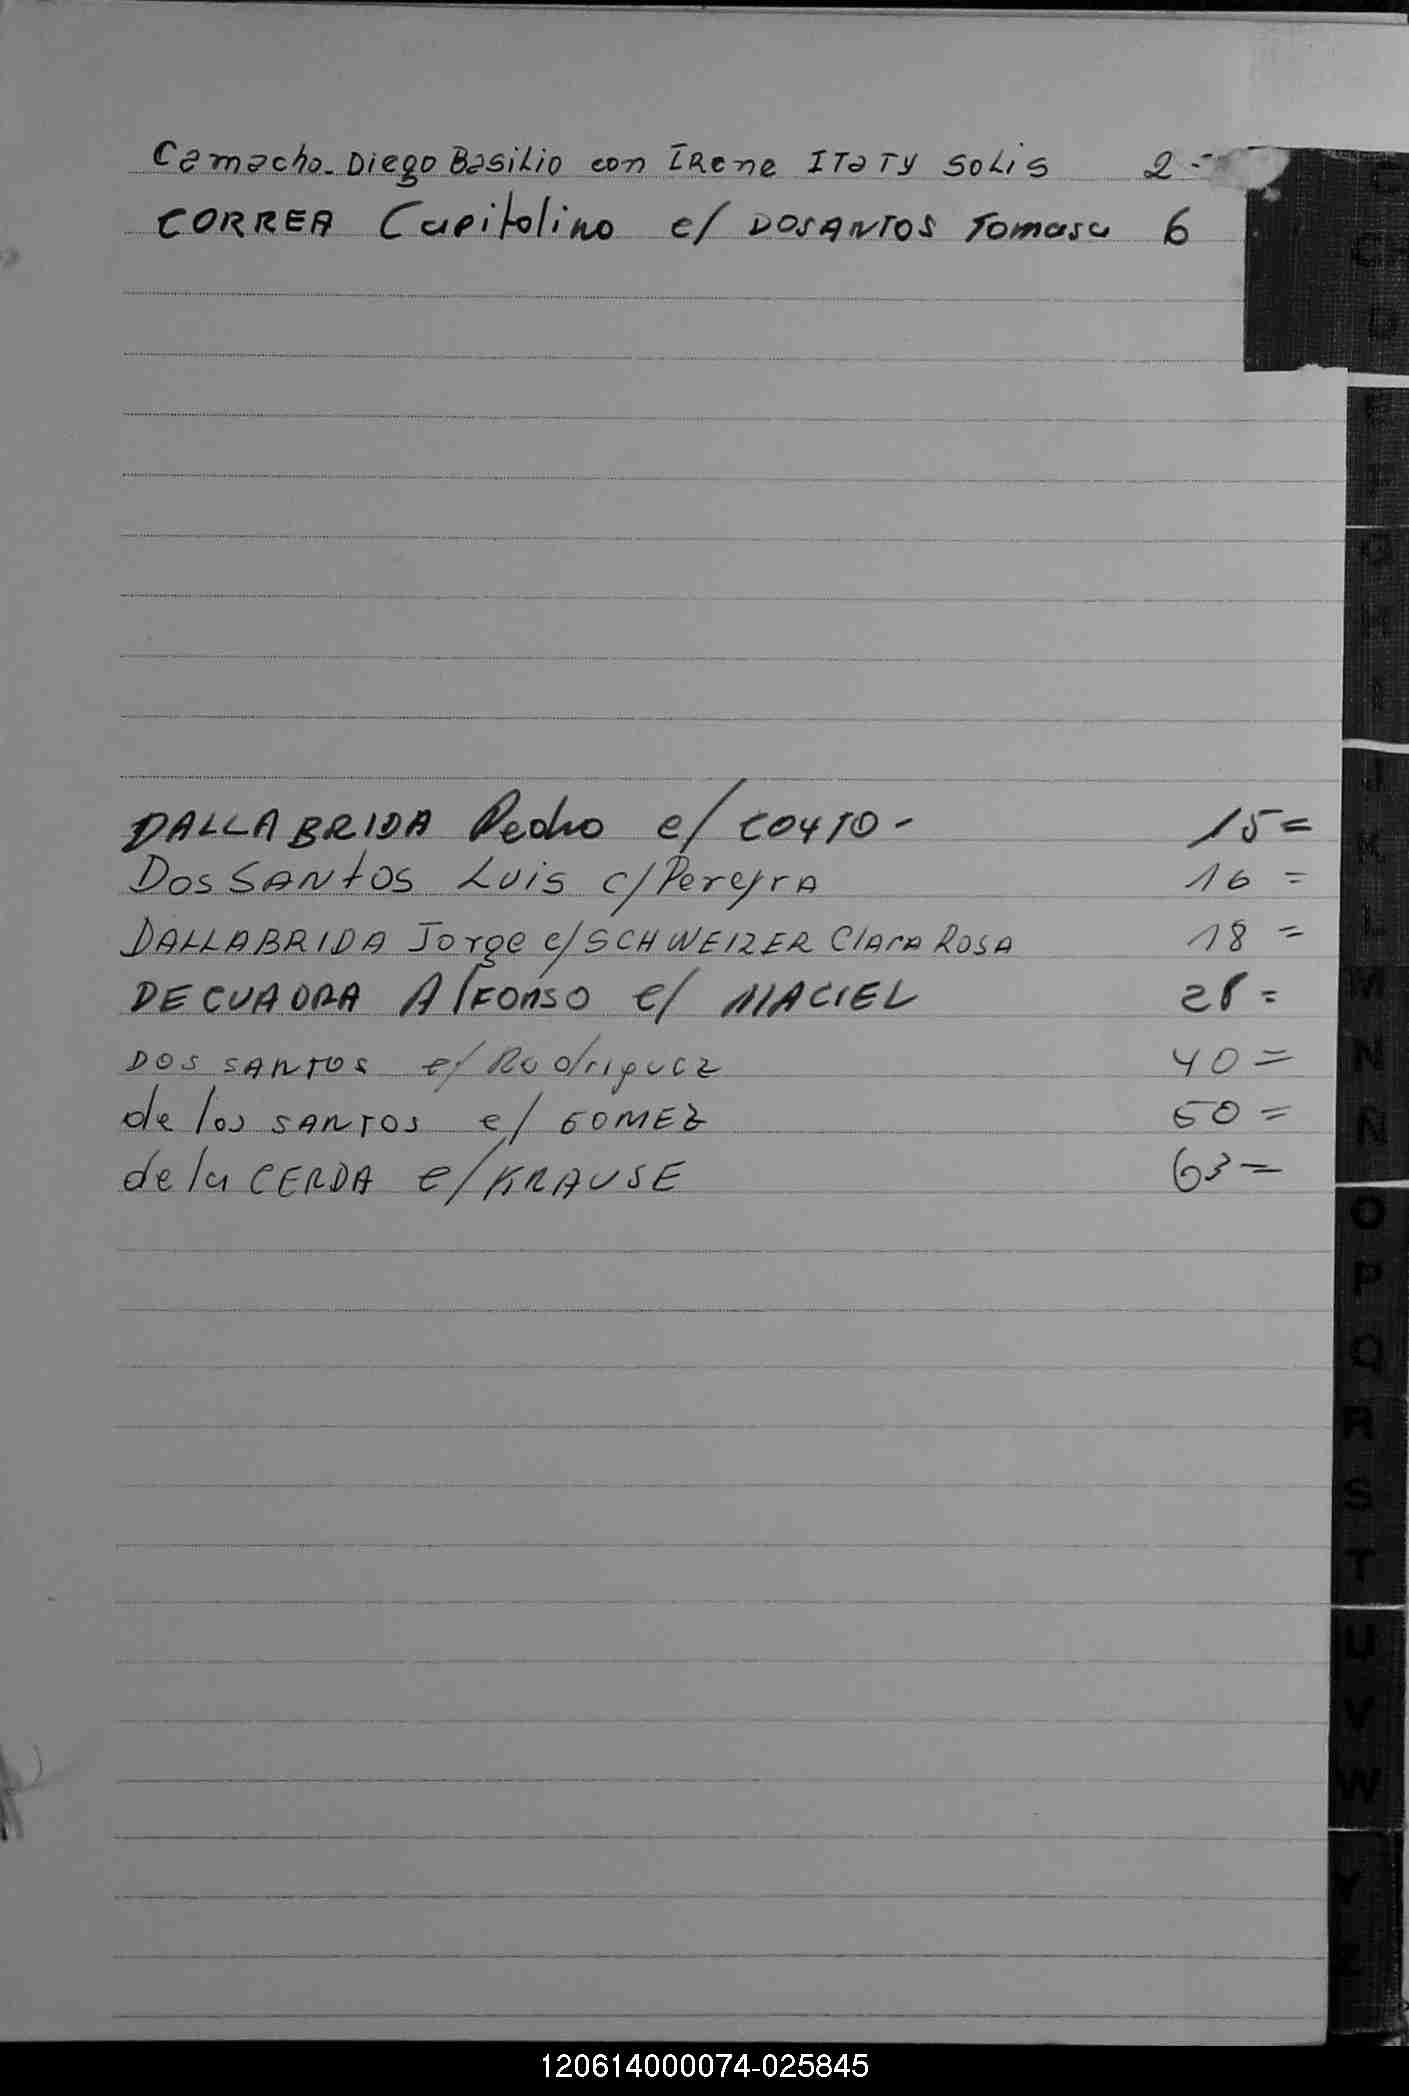 Camacho. Diego Basilio con IRene ITaTY SoLis 2=
CORREA Capitolino c/ DOSANTOS Tomasa 6
DALLABRIDA Pedro c/ COUTO - 15=
Dos SANtOS Luis c/ PereyrA 16 =
DALLABRIDA Jorge c/ SCHWEIZER ClarA ROSA 18 =
DECUADRA AlFonso c/ MACIEL 28=
DOS SANTOS c/ Rodriguez 40=
de los SANTOS c/ GOMEZ 60=
de la CERDA c/ KRAUSE 63=
C
CH
D
E
F
G
H
I
J
K
L
M
N
Ñ
O
P
Q
R
S
T
U
V
W
Y
Z
120614000074-025845